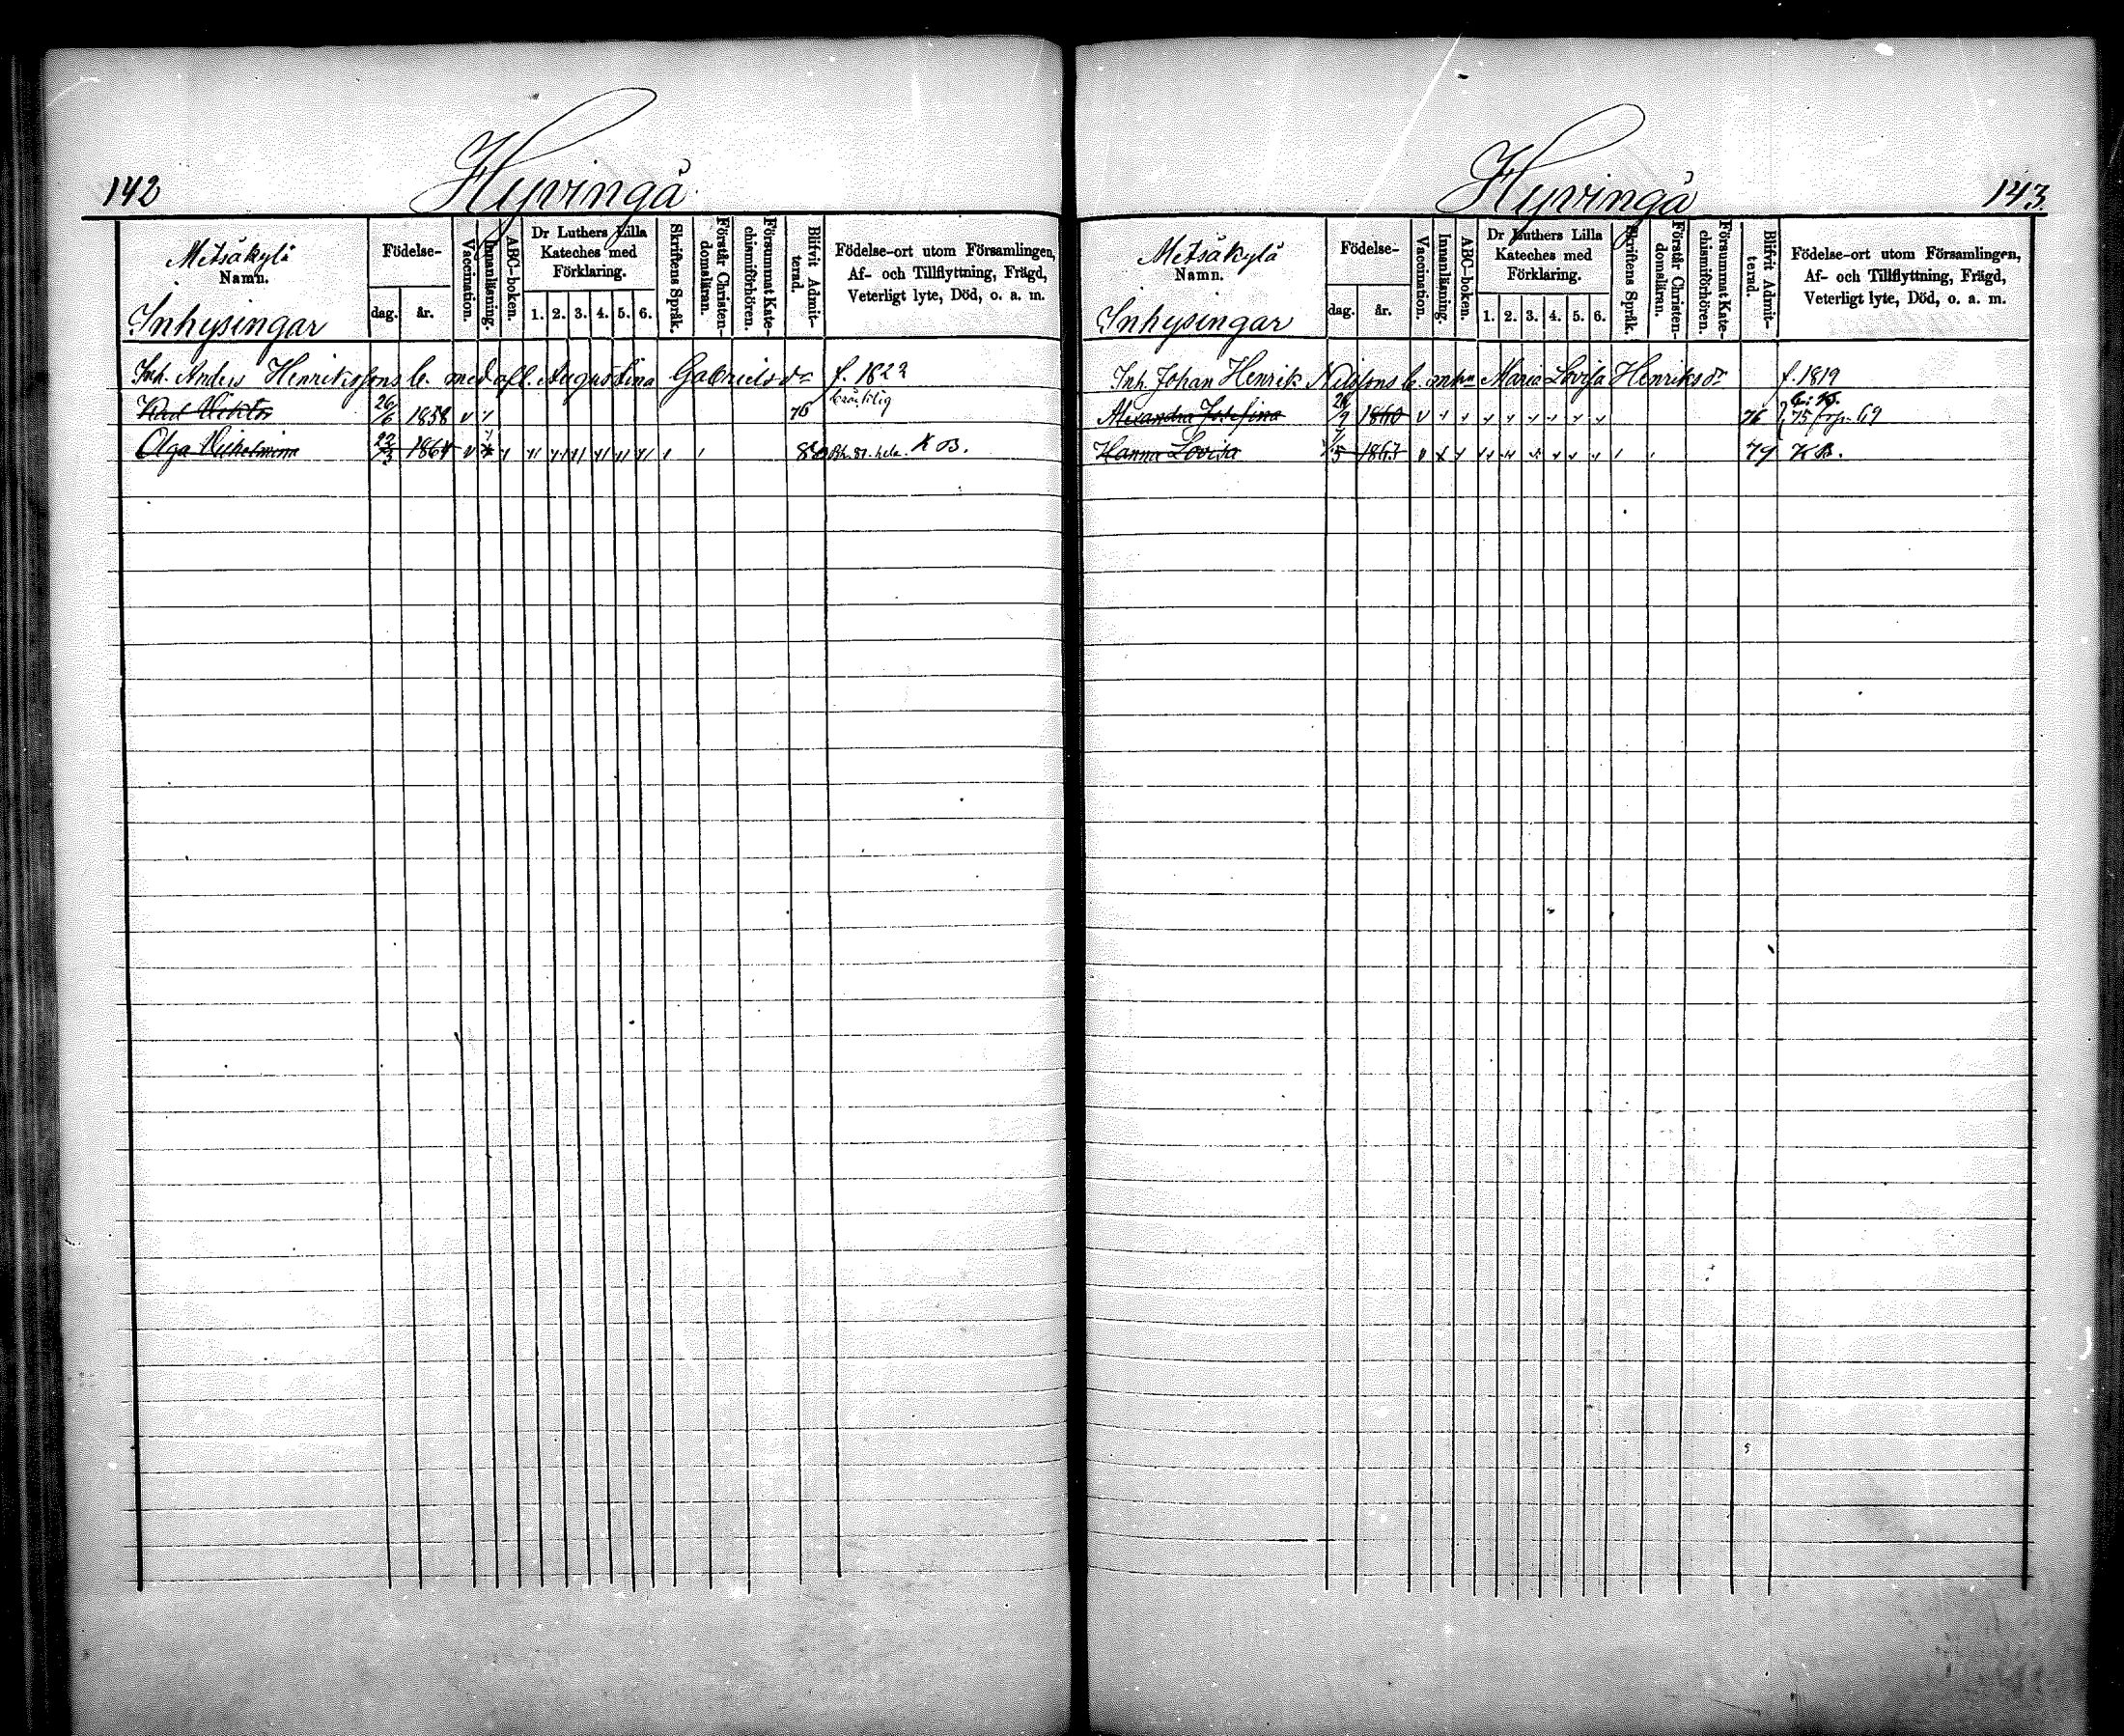 142
Hyvingä
Metsäkylä
Namn.
Inhysingar
Födelse-
dag.
år.
Vaccination.
Innanläsning.
ABC-boken.
Dr Luthers Lilla
Kateches med
Förklaring.
1. 2. 3. 4. 5. 6.
Skriftens Språk.
Förstår Christen-
domsläran.
Försummat Kate-
chismiförhören.
Blifvit Admit-
terad.
Födelse-ort utom Församlingen,
Af- och Tillflyttning, Frägd,
Veterligt lyte, Död, o. a. m.
Inh. Anders Henrikssons b. med afl. Augustina Gabrielsdr f. 1822
Karl Viktor 26/6 1858 v 76
Olga Vilhelmina 1864 v 80 K B.
143.
Hyvingä
Metsäkylä
Namn.
Inhysingar
Födelse-
dag.
år.
Vaccination.
Innanläsning.
ABC-boken.
Dr Luthers Lilla
Kateches med
Förklaring.
1. 2. 3. 4. 5. 6.
Skriftens Språk.
Förstår Christen-
domsläran.
Försummat Kate-
chismiförhören.
Blifvit Admit-
terad.
Födelse-ort utom Församlingen,
Af- och Tillflyttning, Frägd,
Veterligt lyte, Död, o. a. m.
Inh. Johan Henrik Nilssons b. Maria Lovisa Henriksdr f. 1819
Alexandra Josefina 1860 v 76 75 69
Hanna Lovisa 1863 v 79 K B.